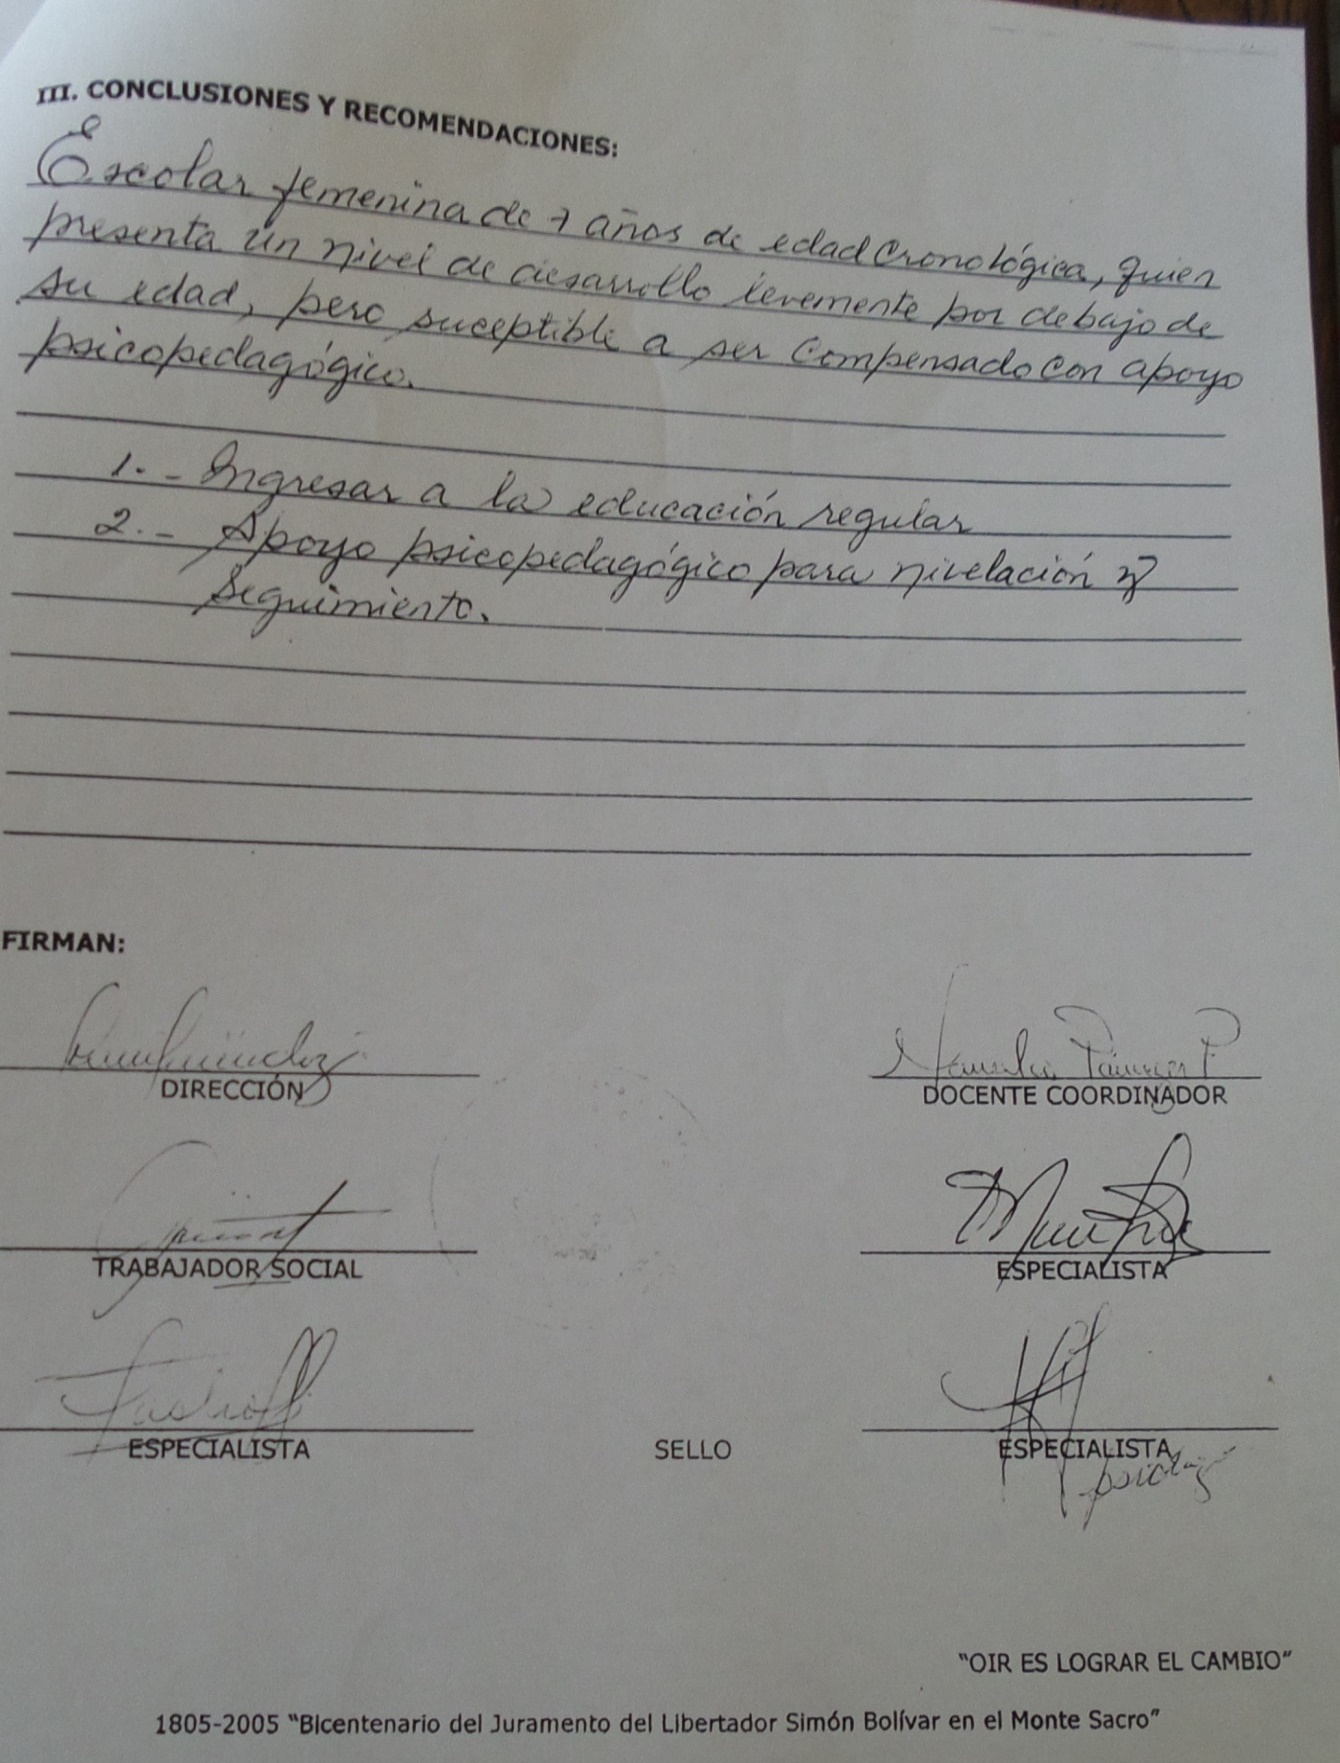 III. CONCLUSIONES Y RECOMENDACIONES:
Escolar femenina de 7 años de edad cronológica, quien
presenta un nivel de desarrollo levemente por debajo de
su edad, pero suceptible a ser compensado con apoyo
psicopedagógico.
1.- Ingresar a la educación regular
2.- Apoyo psicopedagógico para nivelación y
seguimiento.
FIRMAN:
DIRECCIÓN
DOCENTE COORDINADOR
TRABAJADOR SOCIAL
ESPECIALISTA
ESPECIALISTA
SELLO
ESPECIALISTA
"OIR ES LOGRAR EL CAMBIO"
1805-2005 "BIcentenario del Juramento del Libertador Simón Bolívar en el Monte Sacro"